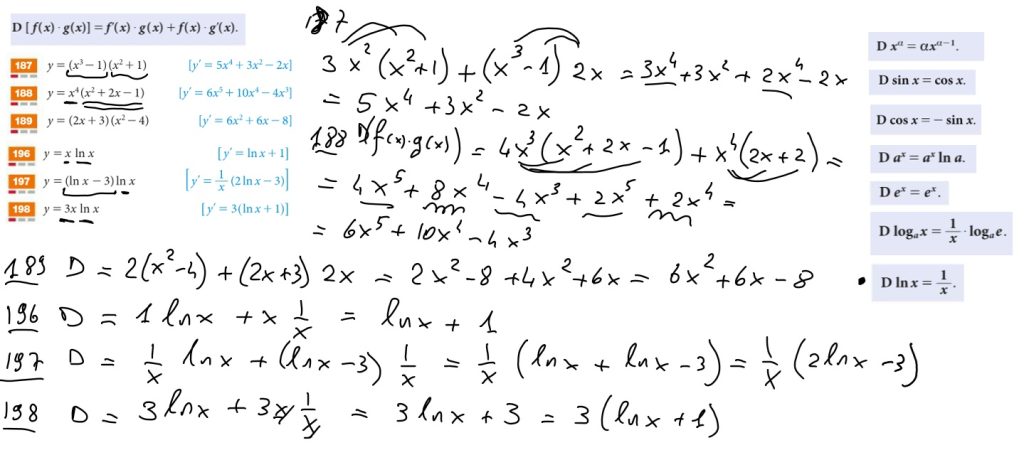 D [f(x) · g(x)] = f'(x) · g(x) + f(x) · g'(x).
187 y = (x³ − 1)(x² + 1) [y' = 5x⁴ + 3x² − 2x]
188 y = x⁴(x² + 2x − 1) [y' = 6x⁵ + 10x⁴ − 4x³]
189 y = (2x + 3)(x² − 4) [y' = 6x² + 6x − 8]
196 y = x ln x [y' = ln x + 1]
197 y = (ln x − 3) ln x [y' = 1/x (2 ln x − 3)]
198 y = 3x ln x [y' = 3(ln x + 1)]
3x²(x²+1) + (x³−1) 2x = 3x⁴+3x²+2x⁴−2x
= 5x⁴+3x²−2x
188 D(f(x)·g(x)) = 4x³(x²+2x−1)+x⁴(2x+2) =
= 4x⁵+8x⁴−4x³+2x⁵+2x⁴ =
= 6x⁵+10x⁴−4x³
189 D = 2(x²−4)+(2x+3) 2x = 2x²−8+4x²+6x = 6x²+6x−8
196 D = 1 lnx + x 1/x = lnx + 1
197 D = 1/x lnx + (lnx−3) 1/x = 1/x (lnx + lnx −3) = 1/x (2lnx −3)
198 D = 3lnx + 3x 1/x = 3lnx + 3 = 3(lnx+1)
D xᵅ = αxᵅ⁻¹.
D sin x = cos x.
D cos x = − sin x.
D aˣ = aˣ ln a.
D eˣ = eˣ.
D logₐx = 1/x · logₐe.
D ln x = 1/x.